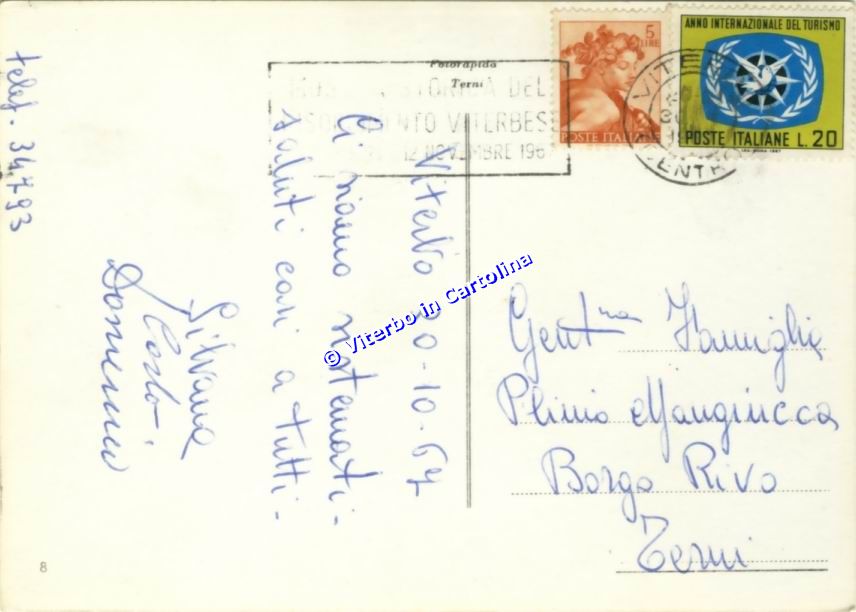 telef. 34793
Fotorapida
Terni
MOSTRA STORICA DEL
RISORGIMENTO VITERBESE
12 NOVEMBRE 1967
5
LIRE
POSTE ITALIANE
ANNO INTERNAZIONALE DEL TURISMO
POSTE ITALIANE L. 20
VITERBO
CENTRO
Viterbo 30-10-67
Ci siamo sistemati.
saluti cari a tutti.
Silvana
Carlo
Domenico
© Viterbo in Cartolina
Gent.ma Famiglia
Plinio Mangiucca
Borgo Rivo
Terni
8